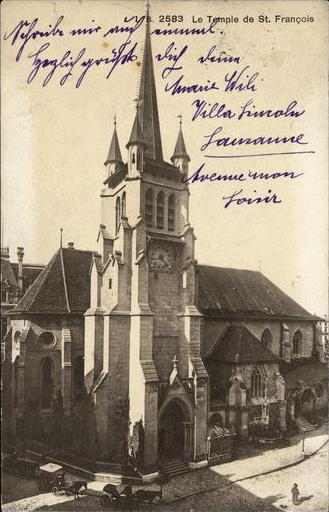 J. J. B. 2583 Le Temple de St. François
Schreibe mir auch einmal.
Herzlich grüsst dich deine
Marie Wili
Villa Lincoln
Lausanne
Avenue mon
Loisir